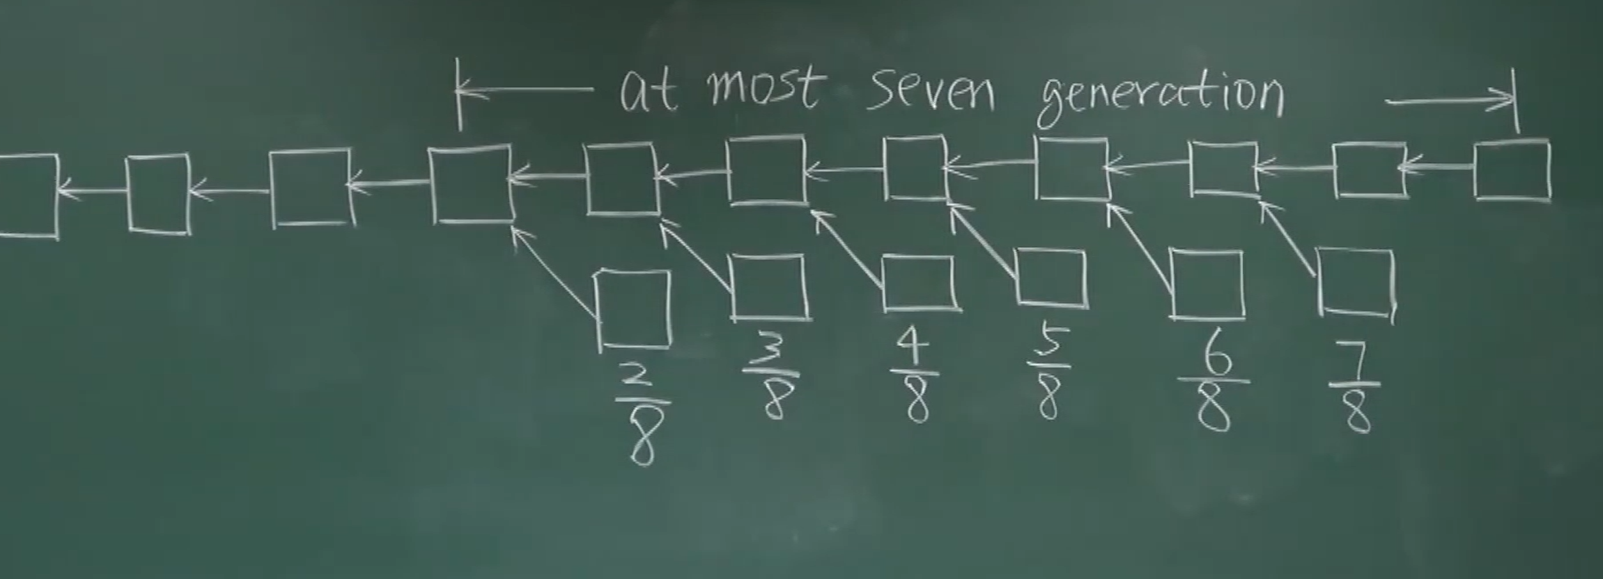 at most seven generation
2/8 3/8 4/8 5/8 6/8 7/8